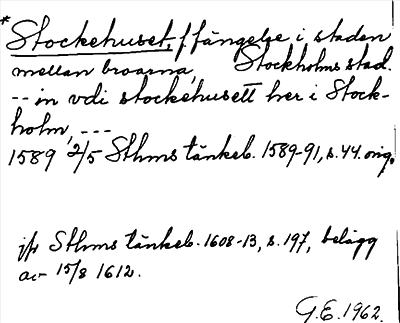 * Stockehuset, f fängelse i staden
mellan broarna, Stockholms stad.
-- in vdi stockehusett her i Stock-
holm, ---
1589 2/5 Sthms tänkeb. 1589-91, s. 44. orig.
jfr Sthms tänkeb. 1608-13, s. 197, belägg
av 15/8 1612.
G.E. 1962.